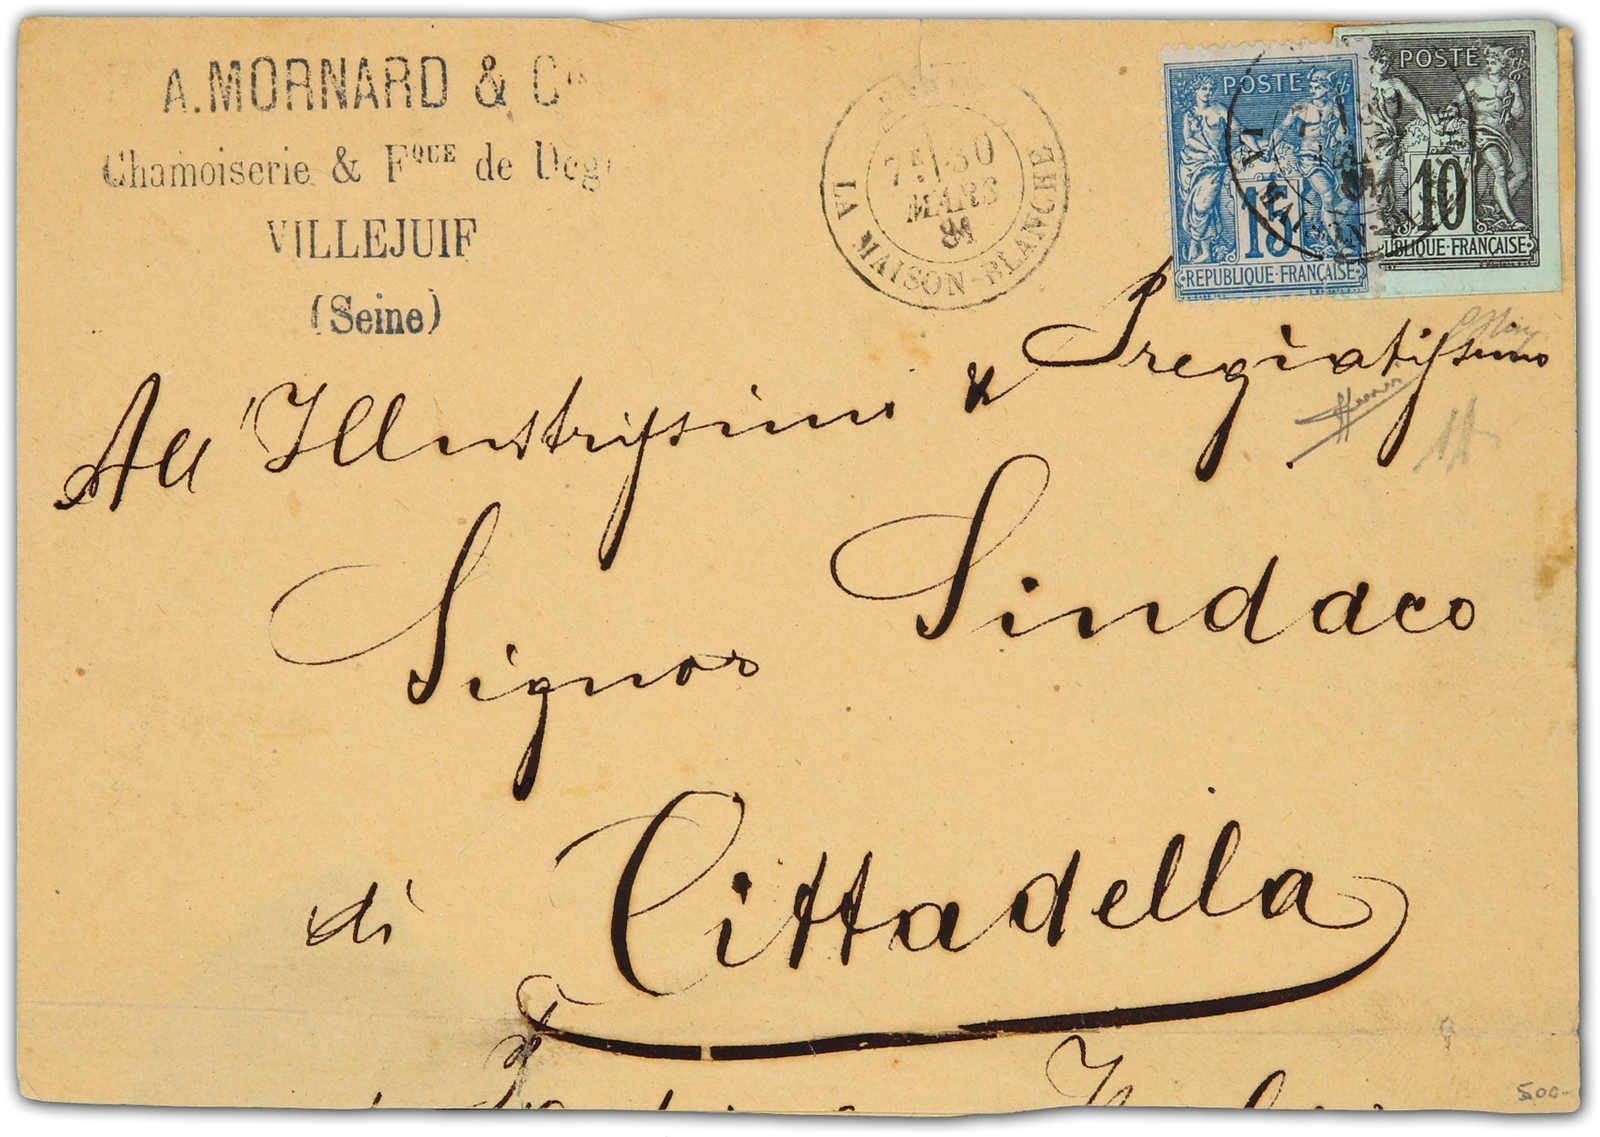 A. MORNARD & Cie
Chamoiserie & Fque de Deg
VILLEJUIF
(Seine)
7E 30
MARS
81
LA MAISON-BLANCHE
POSTE
15
REPUBLIQUE·FRANÇAISE
POSTE
10
UBLIQUE·FRANÇAISE
All' Illustrissimo & Pregiatissimo
Signor Sindaco
di Cittadella
500-